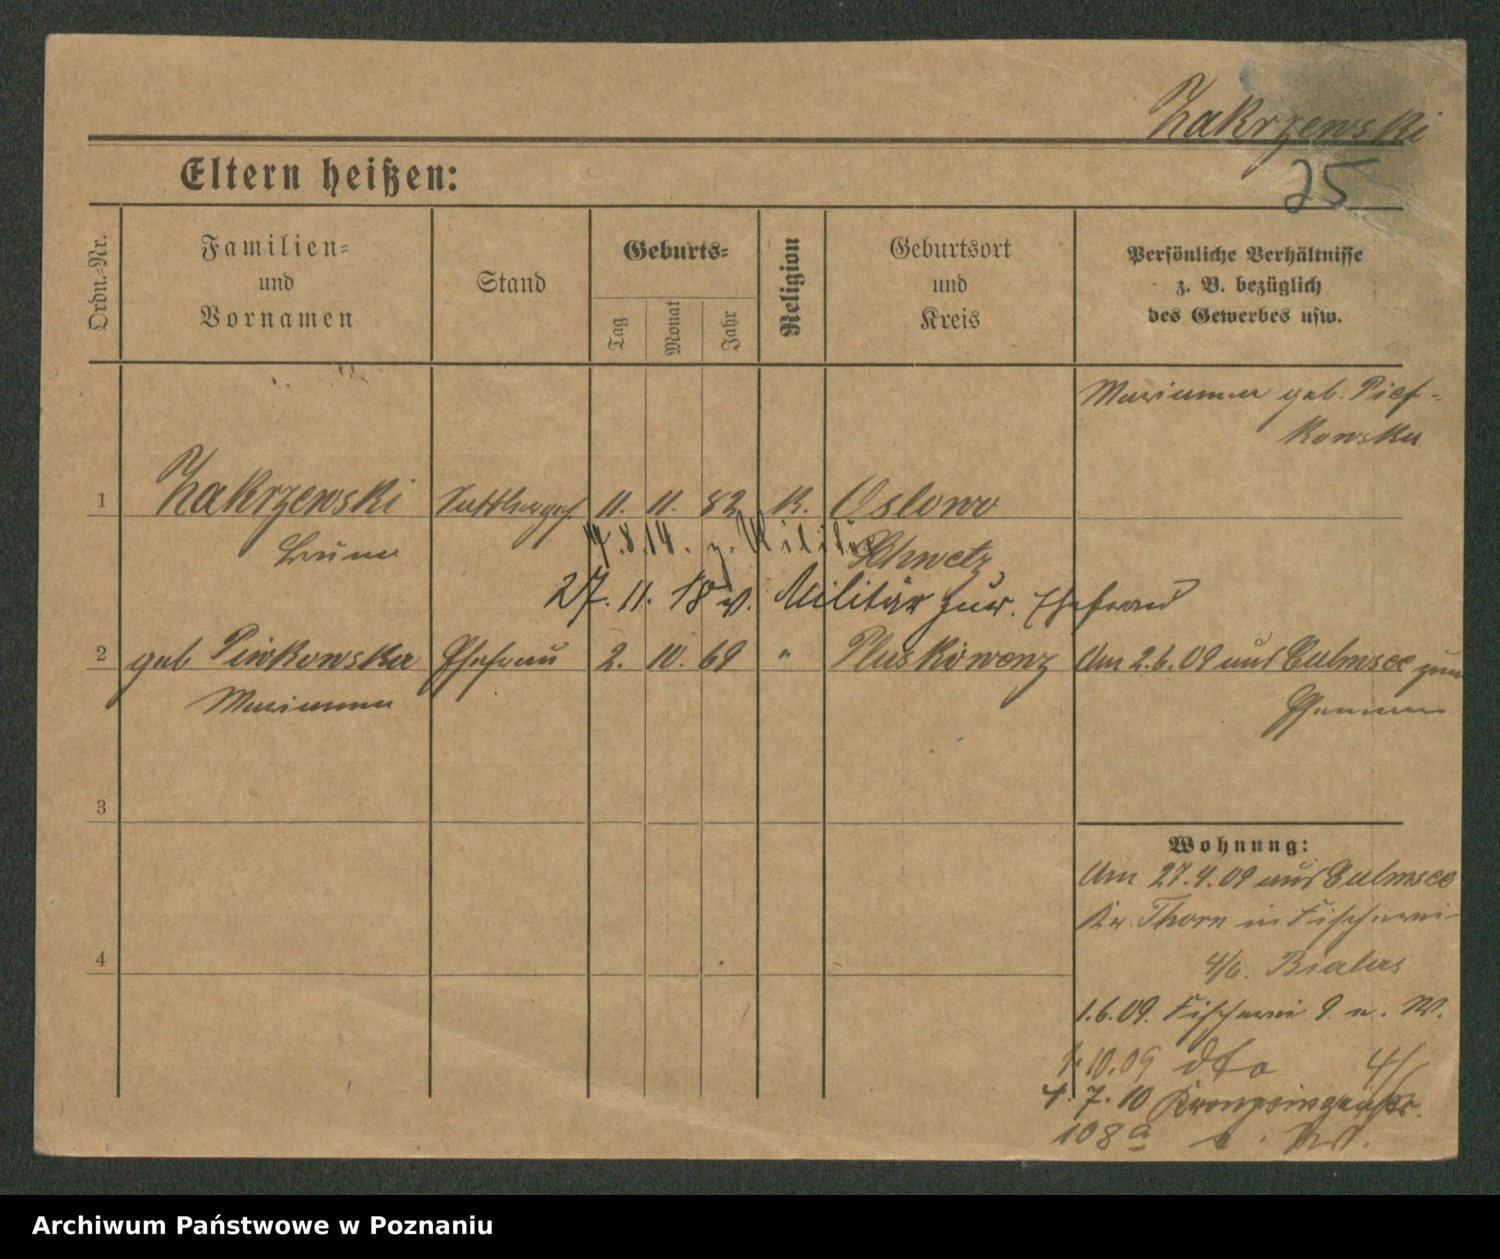 Zakrzewski
25
Eltern heißen:
Ordn.-Nr.
Familien-
und
Vornamen
Stand
Geburts-
Tag
Monat
Jahr
Religion
Geburtsort
und
Kreis
Persönliche Verhältnisse
z. B. bezüglich
des Gewerbes usw.
Marianna geb. Pief-
kowska
1 Zakrzewski Sattlerges. 11. 11. 82 K. Oslowo
Bruno
Schwetz
7.8.14. z. Militär
27. 11. 18 v. Militär zur. Ehefrau
2 geb Piwkowska Ehefrau 2. 10. 69 " Pluskowenz Am 2.6.09 aus Culmsee zum
Marianna
Ehemann
3
4
Wohnung:
Am 27.4.09 aus Culmsee
Kr. Thorn in Fischerei
4/6. Bialas
1.6.09. Fischerei 9 n. W.
1.10.09 dto 4/
4.7.10 Kronprinzenstr.
108a b. W.
Archiwum Państwowe w Poznaniu